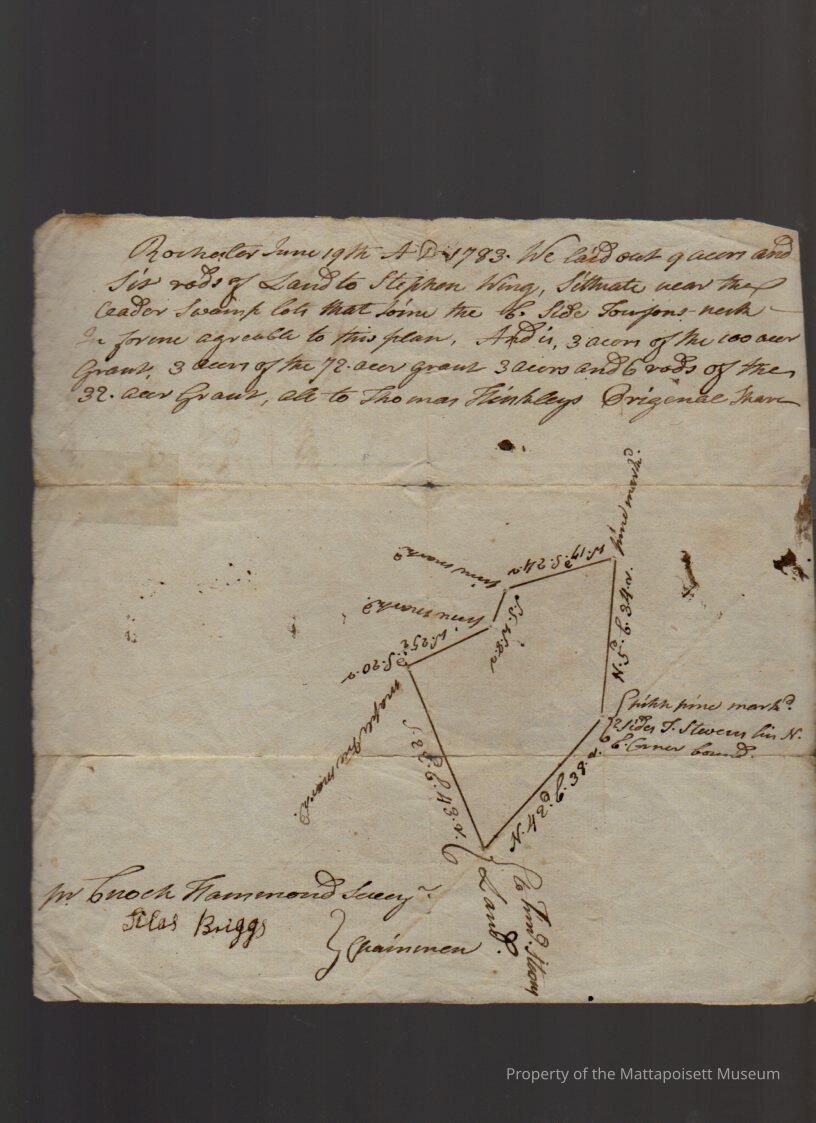 Rochester June 19th A D 1783. We laid out 9 acers and
Six rods of Land to Stephen Wing, Sittuate near the
Ceader Swamp lots that Joine the E. Side Towsons neck
In forme agreable to this plan, And is, 3 acers of the 100 acer
Grant, 3 acers of the 72. acer grant 3 acers and 6 rods of the
32. acer Grant, all to Thomas Hinkleys Origenal Share
pine markd.
pine markd.
pine markd.
N. 5. E. 34. r.
S. 24. r
S. 20. r
maple tree markd.
S. 22. E. 43. r.
N. 42d. E. 38. r.
pine markd.
2 Sides J. Stevens his N.
E. Corner bound.
Land.
pr. Enoch Hammond Survey
Silas Briggs
Chainmen
Property of the Mattapoisett Museum